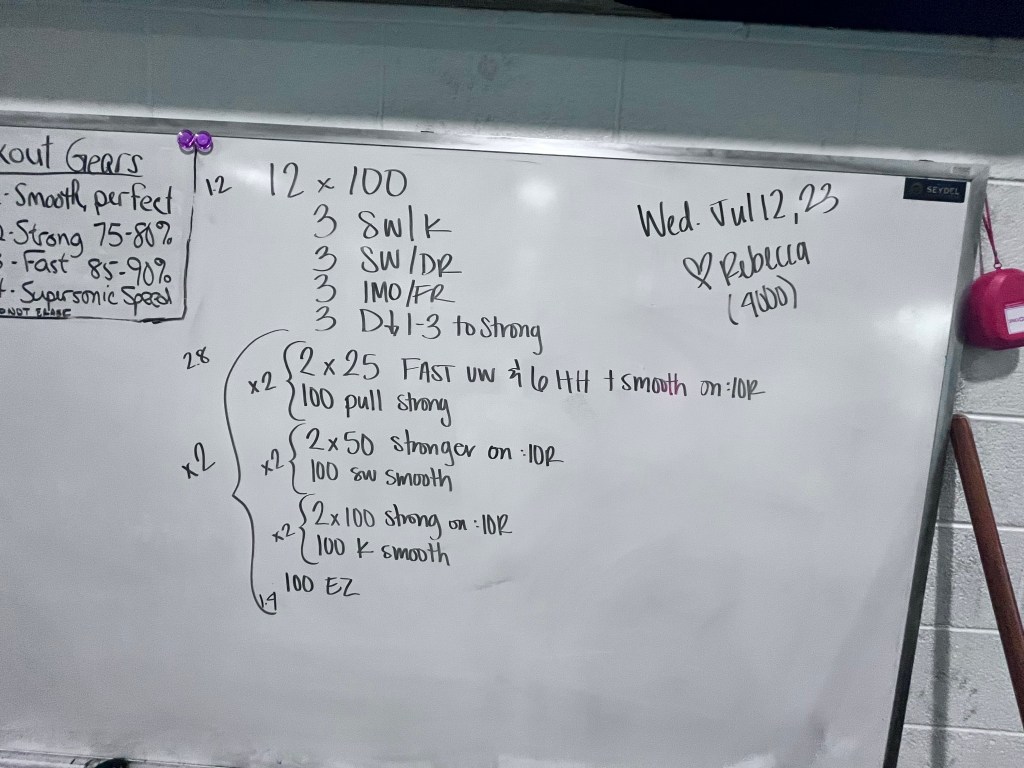 kout Gears
- Smooth, perfect
2-Strong 75-80%
3-Fast 85-90%
4-Supersonic Speed
DO NOT ERASE
1.2 12 x 100
3 SW/K
3 SW/DR
3 IMO/FR
3 D↓1-3 to Strong
2.8
x2
x2 2 x 25 FAST UW & 6 HH + smooth on :10R
100 pull strong
x2 2 x 50 stronger on :10R
100 sw smooth
x2 2 x 100 strong on :10R
100 K smooth
100 EZ
1.4
Wed. Jul 12, 23
♡ Rebecca
(4000)
SEYDEL